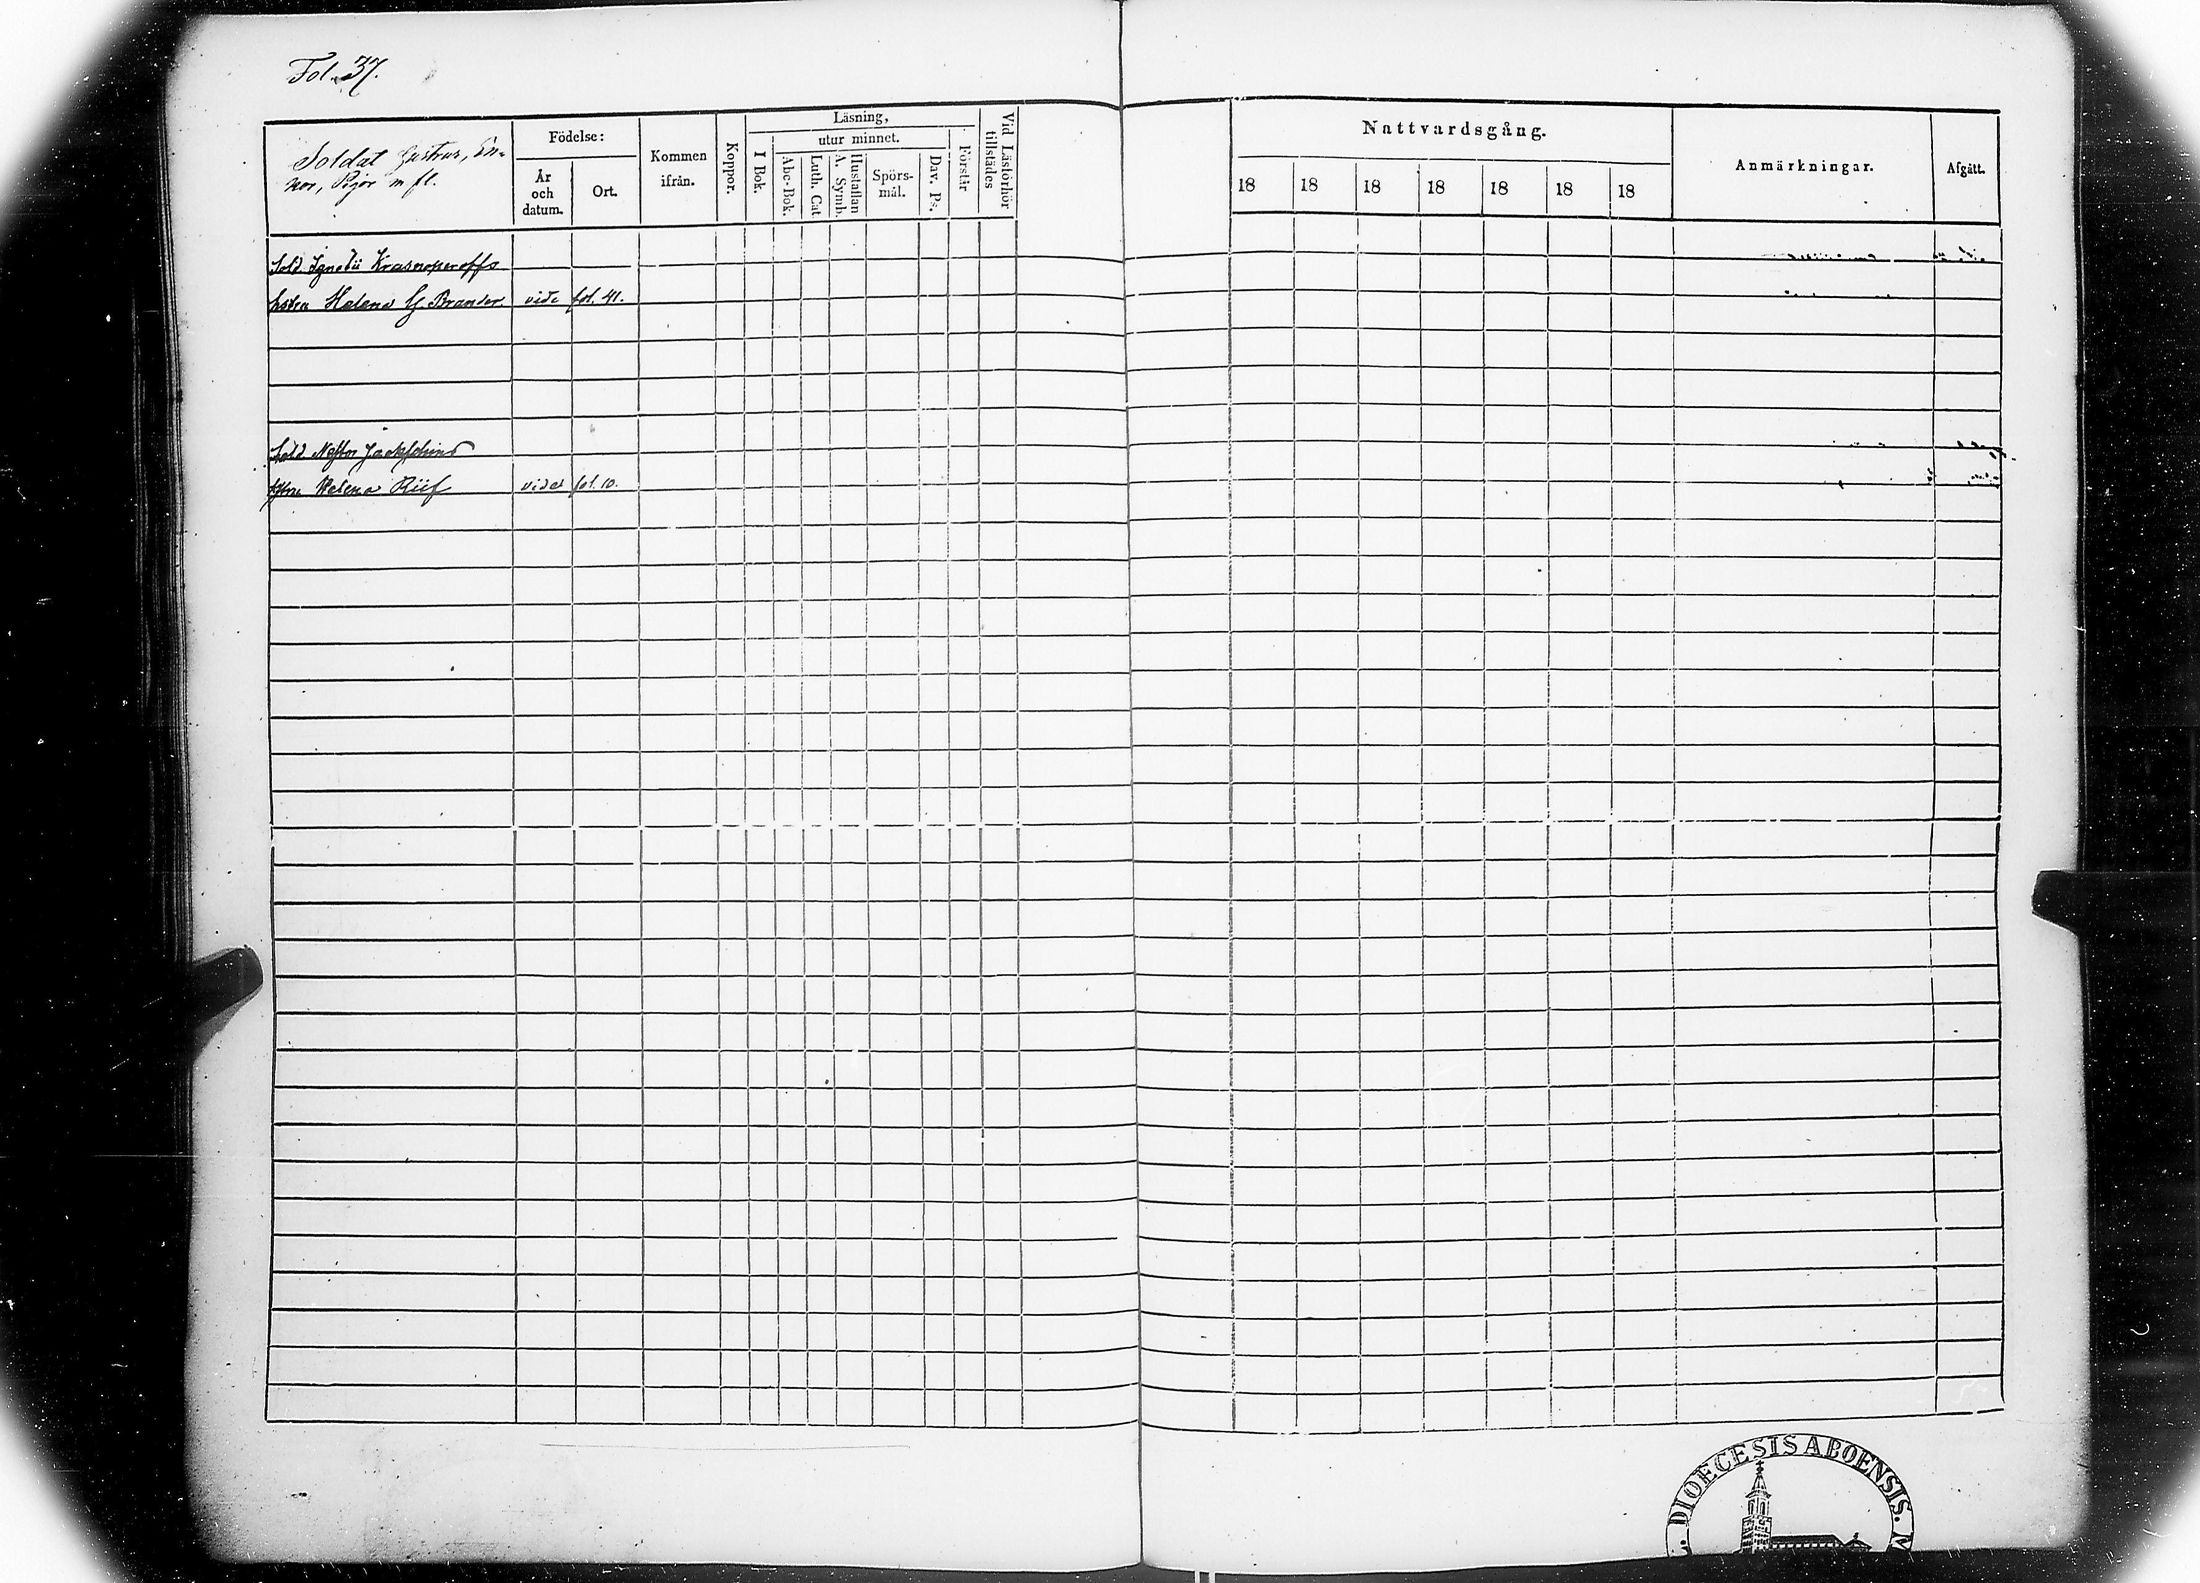 Fol. 37.
Soldat hustrur, En-
kor, Pigor m fl.
Födelse:
År
och
datum.
Ort.
Kommen
ifrån.
Koppor.
Läsning,
I Bok.
utur minnet.
Abc-Bok.
Luth. Cat.
A. Symb.
Hustaflan
Spörs-
mål.
Dav. Ps.
Förstår
Vid Läsförhör
tillstädes
Nattvardsgång.
18 18 18 18 18 18 18
Anmärkningar.
Afgått.
Sold. Krasnoperoffs
hstru Helena Brander. vide fol. 41.
Sold.
Helena vide fol. 10.
DIOECESIS ABOENSIS. M